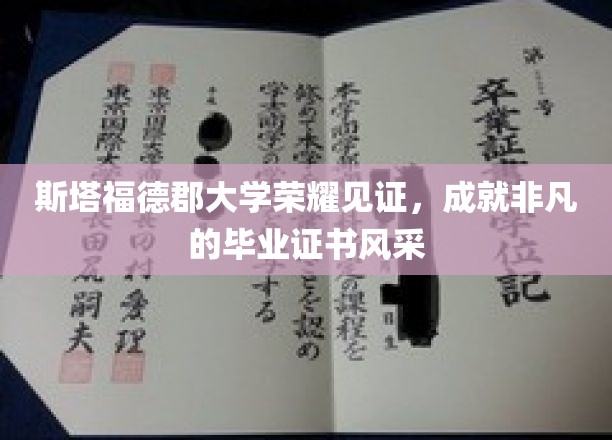 斯塔福德郡大学荣耀见证，成就非凡
的毕业证书风采
第 号
卒業証 学位記
日生
本学商学部 定の課程を
修めて本学 ことを認め
学士(商学)の学 する
平成
東京国際大学 田村愛理
東京国際大 長田尻嗣夫